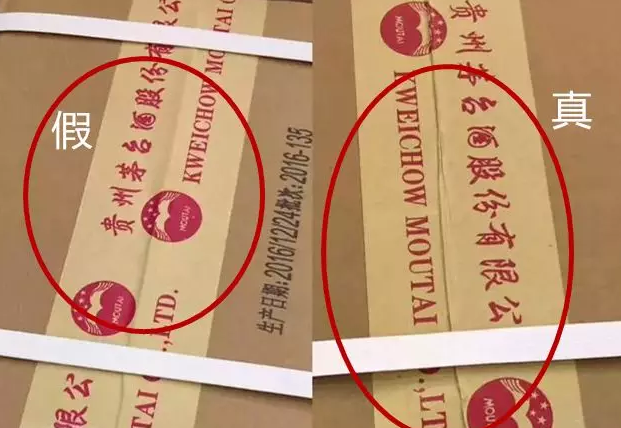 假
贵州茅台酒股份有限公
KWEICHOW MOUTAI
MOUTAI
生产日期:2016/12/24批次:2016-135
MOUTAI
TAI CO.,LTD.
份有限公
真
MOUTAI
贵州茅台酒股份有限公
KWEICHOW MOUTAI
.,LT
MOUTAI